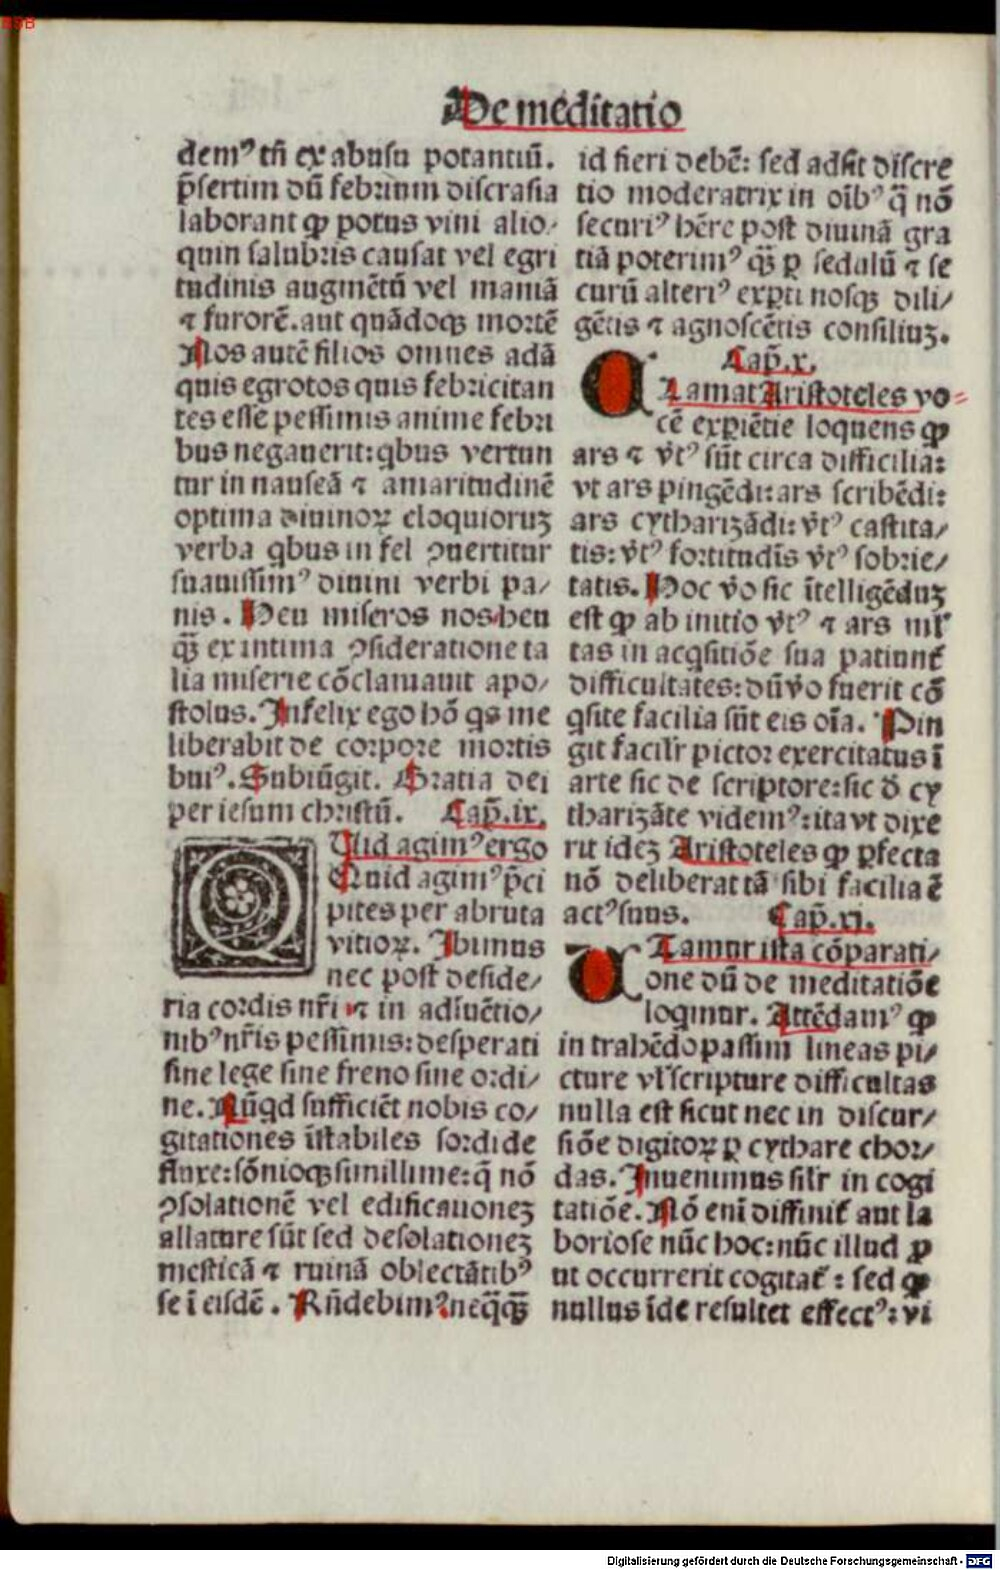 De meditatio
demꝰ tñ ex abusu potantiū.
p̄sertim dū febrium discrasia
laborant ꝙ potus vini alio⸗
quin salubris causat vel egri
tudinis augmētū vel maniā
⁊ furorē. aut quādoqꝫ mortē
Nos autē filios omnes adā
quis egrotos quis febricitan
tes esse pessimis anime febri
bus negauerit: qbus vertun
tur in nauseā ⁊ amaritudinē
optima diuinoꝝ eloquioruꝫ
verba qbus in fel ꝯuertitur
suauissimꝰ diuini verbi pa⸗
nis. Heu miseros nos heu
qꝫ̄ ex intima ꝯsideratione ta
lia miserie cōclamauit apo⸗
stolus. Infelix ego hō qs me
liberabit de corpore mortis
huiꝰ. Subiūgit. Gratia dei
per iesum christū. Cap̄. ix.
QUid agimꝰ ergo
Quid agimꝰ p̄ci
pites per abruta
vitioꝝ. Ibimus
nec post deside⸗
ria cordis nr̄i ⁊ in adīuētio⸗
nibꝰ nr̄is pessimis: desperati
sine lege sine freno sine ordi⸗
ne. Nūqd sufficiēt nobis co⸗
gitationes īstabiles sordide
fluxe: sōnioqꝫ simillime: q̄ nō
ꝯsolationē vel edificationeꝫ
allature sūt sed desolationeꝫ
mesticā ⁊ ruinā oblectātibꝰ
se ī eisdē. Rñdebimꝰ neq̄qꝫ̄
id fieri debē: sed adsit discre
tio moderatrix in oībꝰ q̄ nō
securiꝰ hēre post diuinā gra
tiā poterimꝰ qꝫ̄ ꝑ sedulū ⁊ se
curū alteriꝰ exꝑti nosqꝫ dili⸗
gētis ⁊ agnoscētis consiliuꝫ.
Cap̄. x.
CLamat Aristoteles vo⸗
cē exꝑiētie loquens ꝙ
ars ⁊ v̄tꝰ sūt circa difficilia:
vt ars pingēdi: ars scribēdi:
ars cytharizādi: v̄tꝰ castita⸗
tis: v̄tꝰ fortitudīs v̄tꝰ sobrie⸗
tatis. Hoc v̄o sic ītelligēduꝫ
est ꝙ ab initio v̄tꝰ ⁊ ars ml̓
tas in acqsitiōe sua patiunt᷑
difficultates: dū v̄o fuerit cō
qsite facilia sūt eis oīa. Pin
git facilr̓ pictor exercitatus ī
arte sic de scriptore: sic d̄ cy
tharizāte videmꝰ: ita vt dixe
rit ideꝫ Aristoteles ꝙ ꝑfecta
nō deliberat tā sibi facilia ē
actꝰ suus. Cap̄. xi.
UTamur ista cōparati⸗
one dū de meditatiōe
loqmur. Attēdamꝰ ꝙ
in trahēdo passim lineas pi⸗
cture vl̓ scripture difficultas
nulla est sicut nec in discur⸗
siōe digitoꝝ ꝑ cythare chor⸗
das. Inuenimus silr̓ in cogi
tatiōe. Nō enī diffinit᷑ aut la
boriose nūc hoc: nūc illud ꝓ
ut occurrerit cogitat᷑: sed ꝙ
nullus īde resultet effectꝰ: vi
Digitalisierung gefördert durch die Deutsche Forschungsgemeinschaft - DFG